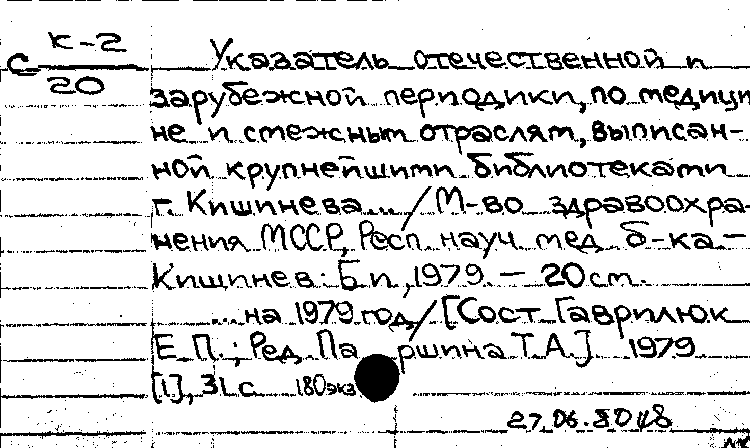 с К-2
20
Указатель отечественной и
зарубежной периодики, по медици
не и смежным отраслям, выписан-
ной крупнейшими библиотеками
г. Кишинева... / М-во здравоохра-
нения МССР, Респ. науч. мед. б-ка. -
Кишинев: Б.и., 1979. - 20 см.
...на 1979 год / [Сост. Гаврилюк
Е. П.; Ред. Паршина Т. А.] 1979.
[1], 31 с. 180 экз
27.06.80